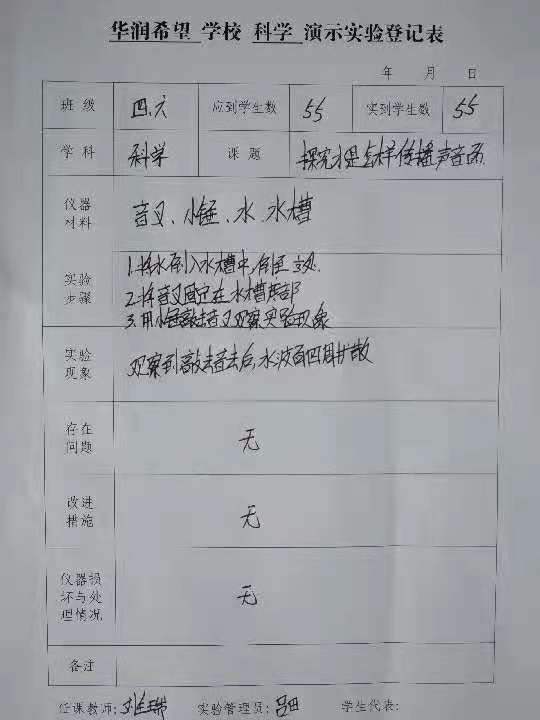 华润希望 学校 科学 演示实验登记表
年 月 日
班级 四.六 应到学生数 55 实到学生数 55
学科 科学 课题 探究水是怎样传播声音的
仪器
材料
音叉、小锤、水、水槽
实验
步骤
1.将水倒入水槽中,
2.将音叉固定在水槽底部
3.用小锤敲击音叉观察实验现象
实验
现象
观察到敲击音叉后,水波向四周扩散
存在
问题
无
改进
措施
无
仪器损
坏与处
理情况
无
备注
任课教师: 实验管理员:吕田 学生代表: